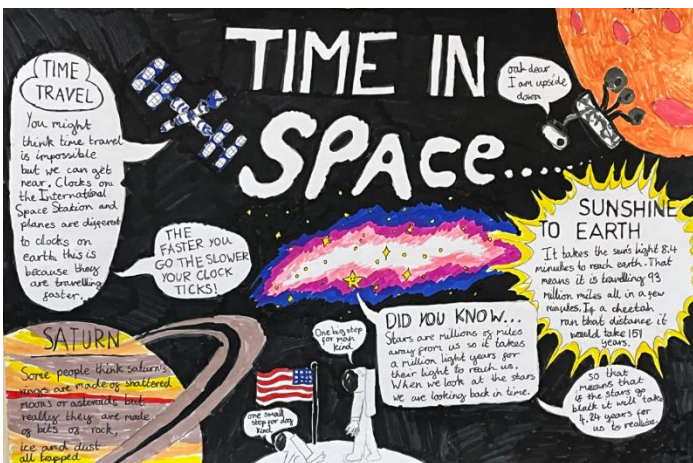 TIME IN
SPACE......
(TIME
TRAVEL)
You might
think time travel
is impossible
but we can get
near. Clocks on
the International
Space Station and
planes are different
to clocks on
earth this is
because they
are travelling
faster.
THE
FASTER YOU
GO THE SLOWER
YOUR CLOCK
TICKS!
ooh dear
I am upside
down
SUNSHINE
TO EARTH
It takes the sun's light 8.4
minutes to reach earth. That
means it is travelling 93
million miles all in a few
minutes. If a cheetah
ran that distance it
would take 151
years.
DID YOU KNOW...
Stars are millions of miles
away from us so it takes
a million light years for
their light to reach us.
When we look at the stars
we are looking back in time.
SO that
means that
if the stars go
black it will take
4.24 years for
us to realise.
One big step
for man
kind
one small
step for dog
kind
SATURN
Some people think saturn's
rings are made of shattered
moons or asteroids but
really they are made
of bits of rock,
ice and dust
all trapped